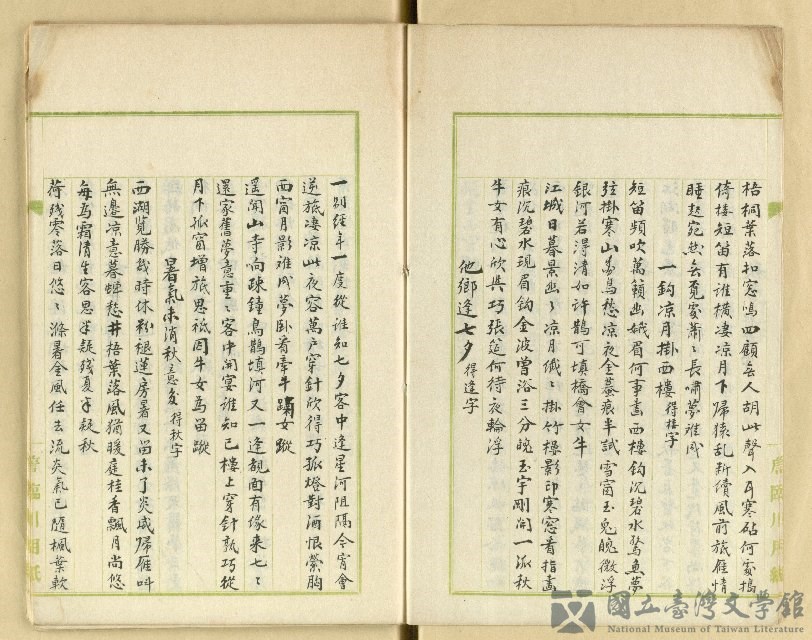 梧桐葉落扣窓鳴四顧無人胡此聲入耳寒砧何處搗
倚樓短笛有誰橫凄凉月下歸猿乱新續風前旅雁情
睡起宛然無覓處蕭々長嘯夢難成
一鈎凉月掛西樓 得樓字
短笛頻吹萬籟幽娥眉何事畫西樓鈎沉碧水驚魚夢
弦掛寒山鳥愁凉夜全痕半試雪窗玉兔魄微浮
銀河若淂清如許鵲可填橋會女牛
江城日暮景幽々凉月纖々掛竹樓影印寒窓看指畫
痕沉碧水現眉鈎金波曽浴三分魄玉宇剛開一派秋
牛女有心欣與巧張筵何待夜輪浮
他鄉逢七夕 得逢字
一別經年一度從誰知七夕客中逢星河阻隔今宵會
逆旅凄凉此夜容萬户穿針欣得巧孤燈對酒恨縈胸
西窗月影難成夢卧看牽牛女蹤
遥聞山寺响疎鐘鳥鵲填河又一逢覿面有像来七々
還家舊夢意重々客中閑宴誰知己樓上穿針孰巧從
月下孤窗增旅思祗因牛女為留蹤
暑氣未消秋意多 得秋字
西湖覧勝幾時休褪蓮房暑又留未了炎威歸雁叫
無邊凉意暮蟬愁井梧葉落風猶暖庭桂香飄月尚悠
每為霜清生客思半疑殘夏半疑秋
荷殘零落日悠々滌暑金風任去流炎氣已隨楓葉軟
唐臨川用紙
國立臺灣文學館
National Museum of Taiwan Literature